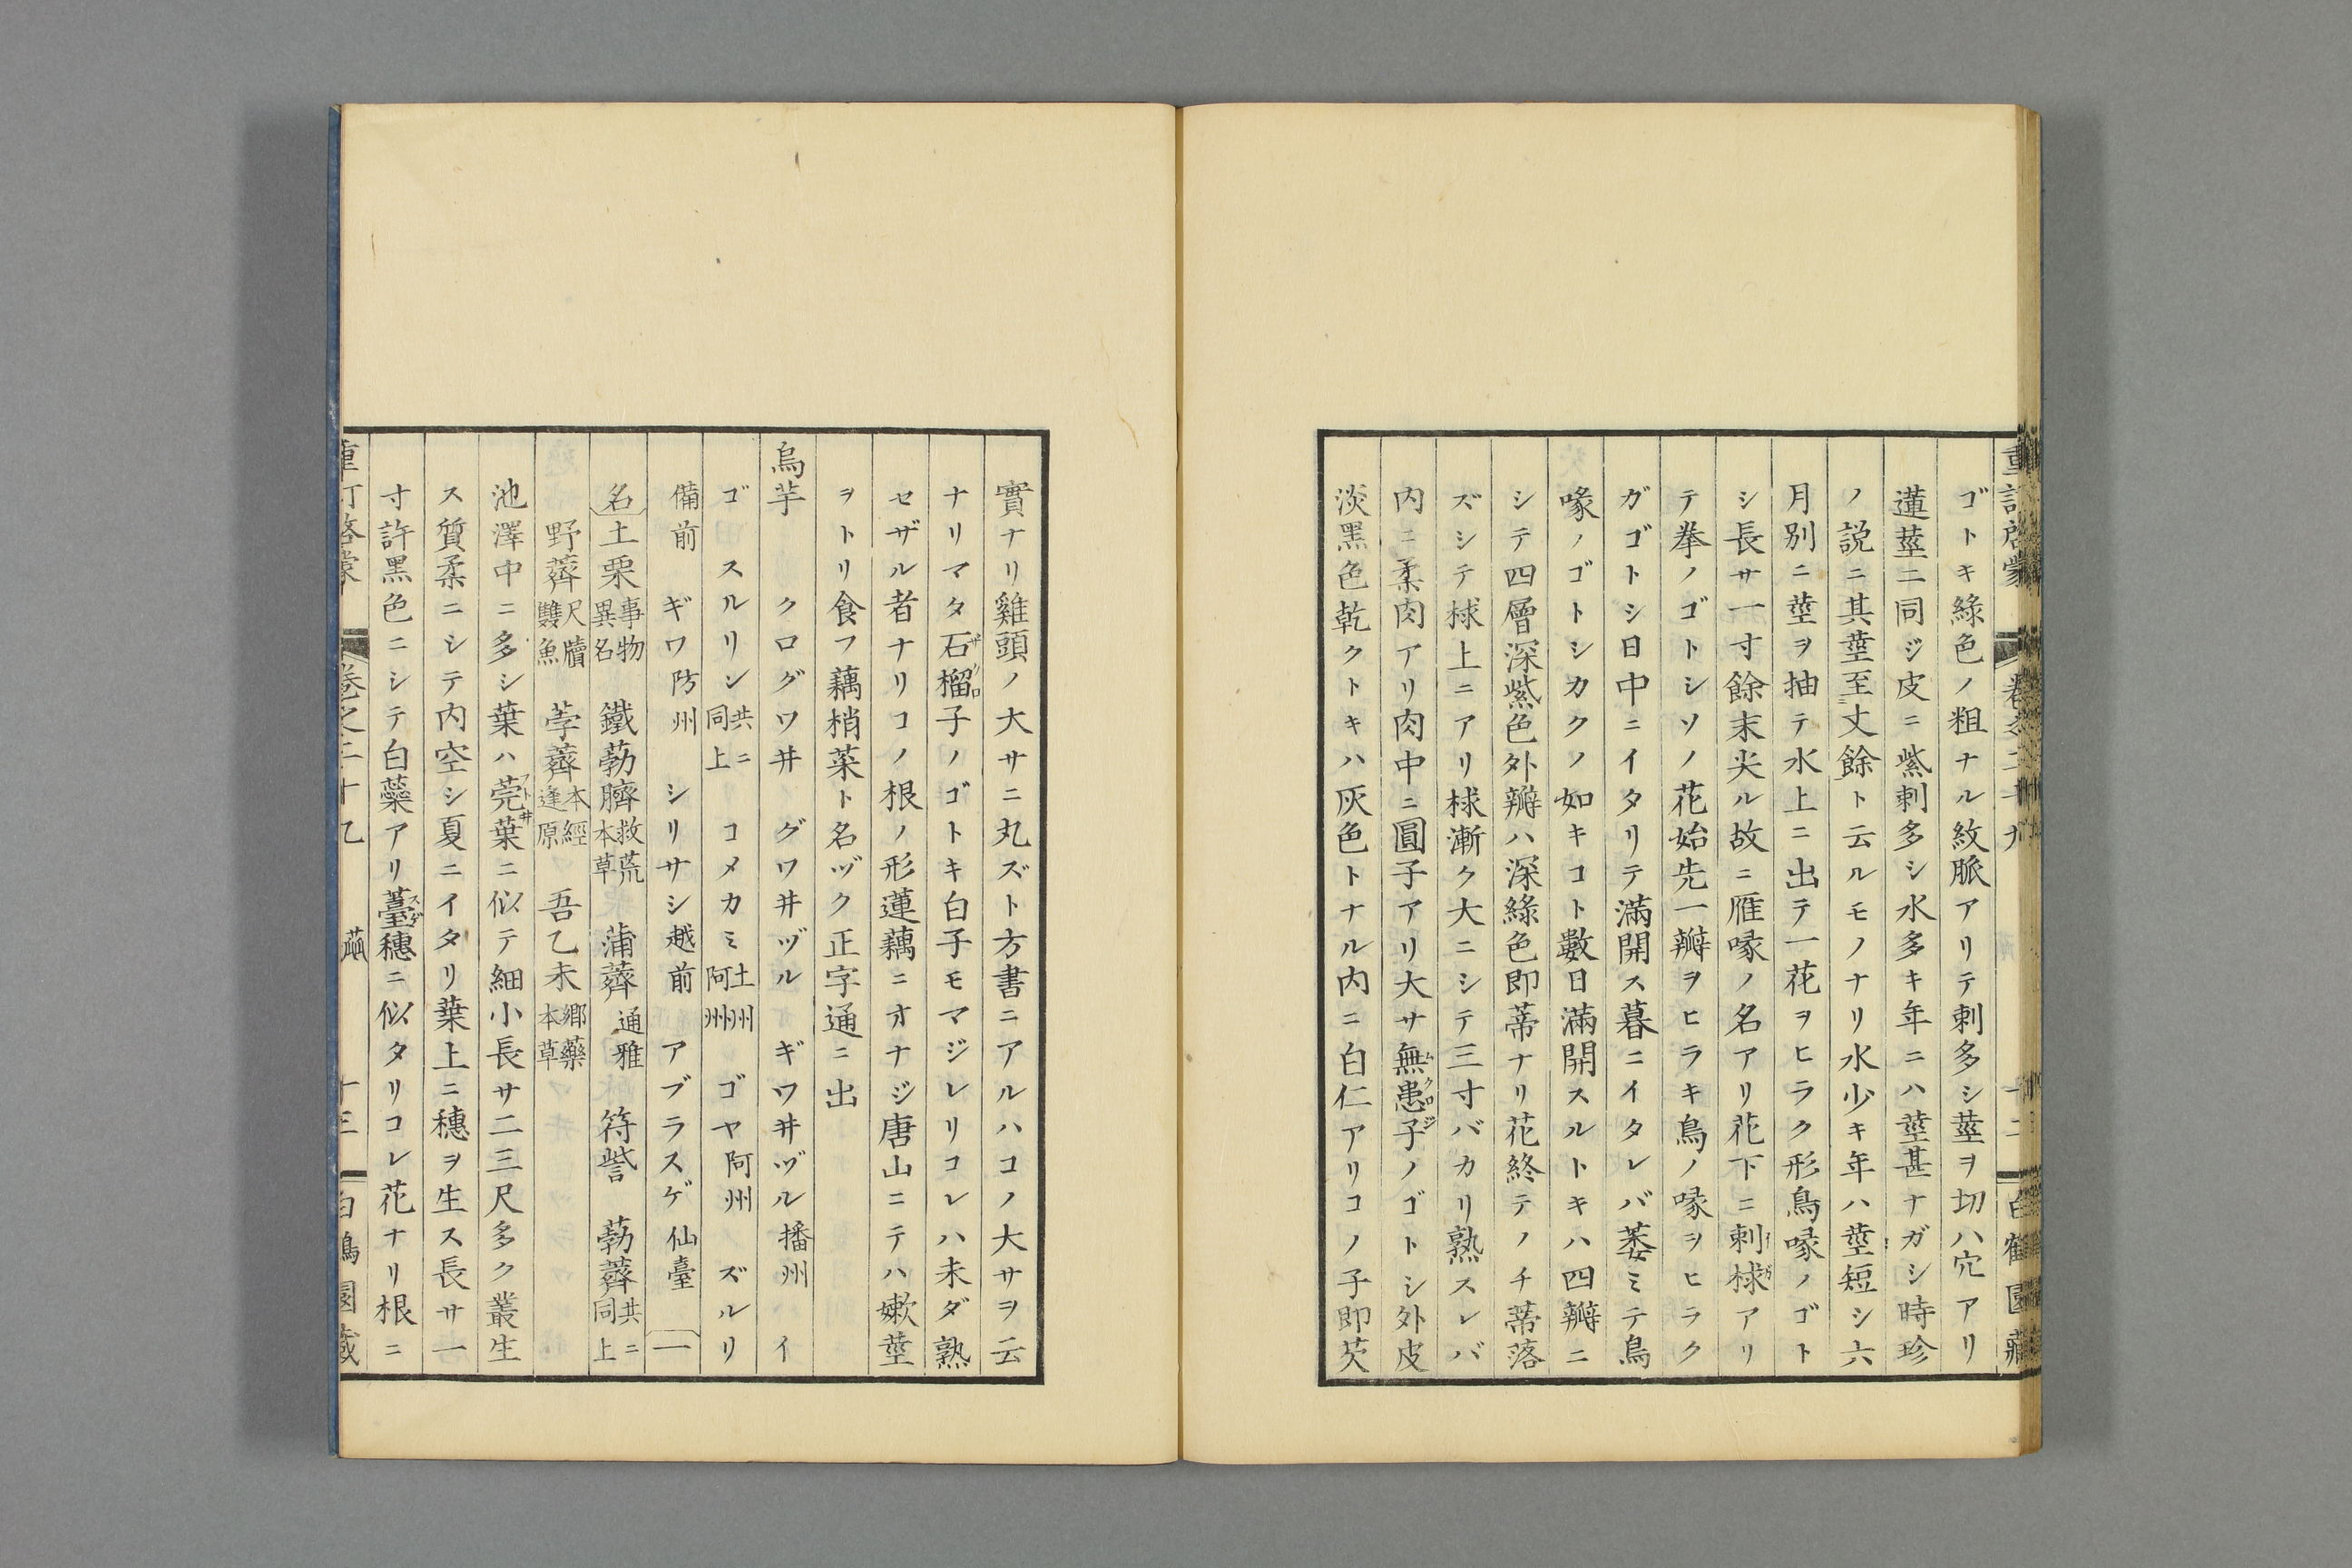 ゴトキ綠色ノ粗ナル紋脈アリテ刺多シ莖ヲ切ハ穴アリ
蓮莖ニ同ジ皮ニ紫刺多シ水多キ年ニハ莖甚ナガシ時珍
ノ説ニ其莖至丈餘ト云ルモノナリ水少キ年ハ莖短シ六
月別ニ莖ヲ抽テ水上ニ出テ一花ヲヒラク形鳥喙ノゴト
シ長サ一寸餘末尖ル故ニ雁喙ノ名アリ花下ニ刺毬アリ
テ拳ノゴトシソノ花始先一瓣ヲヒラキ鳥ノ喙ヲヒラク
ガゴトシ日中ニイタリテ滿開ス暮ニイタレバ萎ミテ鳥
喙ノゴトシカクノ如キコト數日滿開スルトキハ四瓣ニ
シテ四層深紫色外瓣ハ深綠色即蒂ナリ花終テノチ蒂落
ズシテ毬上ニアリ毬漸ク大ニシテ三寸バカリ熟スレバ
内ニ柔肉アリ肉中ニ圓子アリ大サ無患子ムクロジノゴトシ外皮
淡黑色乾クトキハ灰色トナル内ニ白仁アリコノ子即芡
實ナリ雞頭ノ大サニ丸ズト方書ニアルハコノ大サヲ云
ナリマタ石榴ザクロ子ノゴトキ白子モマジレリコレハ未ダ熟
セザル者ナリコノ根ノ形蓮藕ニオナジ唐山ニテハ嫩莖
ヲトリ食フ藕梢菜ト名ヅク正字通ニ出
烏芋 クログワヰ グワヰヅル ギワヰヅル播州 イ
ゴ スルリン共ニ同上 コメカミ土州阿州 ゴヤ阿州 ズルリ
備前 ギワ防州 シリサシ越前 アブラスゲ仙臺 一
名土栗事物異名 鐵葧臍救荒本草 蒲薺通雅 符訾 葧薺共ニ同上
野薺尺牘雙魚 荸薺本經逢原 吾乙未鄉藥本草
池澤中ニ多シ葉ハ莞フトヰ葉ニ似テ細小長サ二三尺多ク叢生
ス質柔ニシテ内空シ夏ニイタリ葉上ニ穗ヲ生ス長サ一
寸許黑色ニシテ白蘂アリ薹スゲ穗ニ似タリコレ花ナリ根ニ